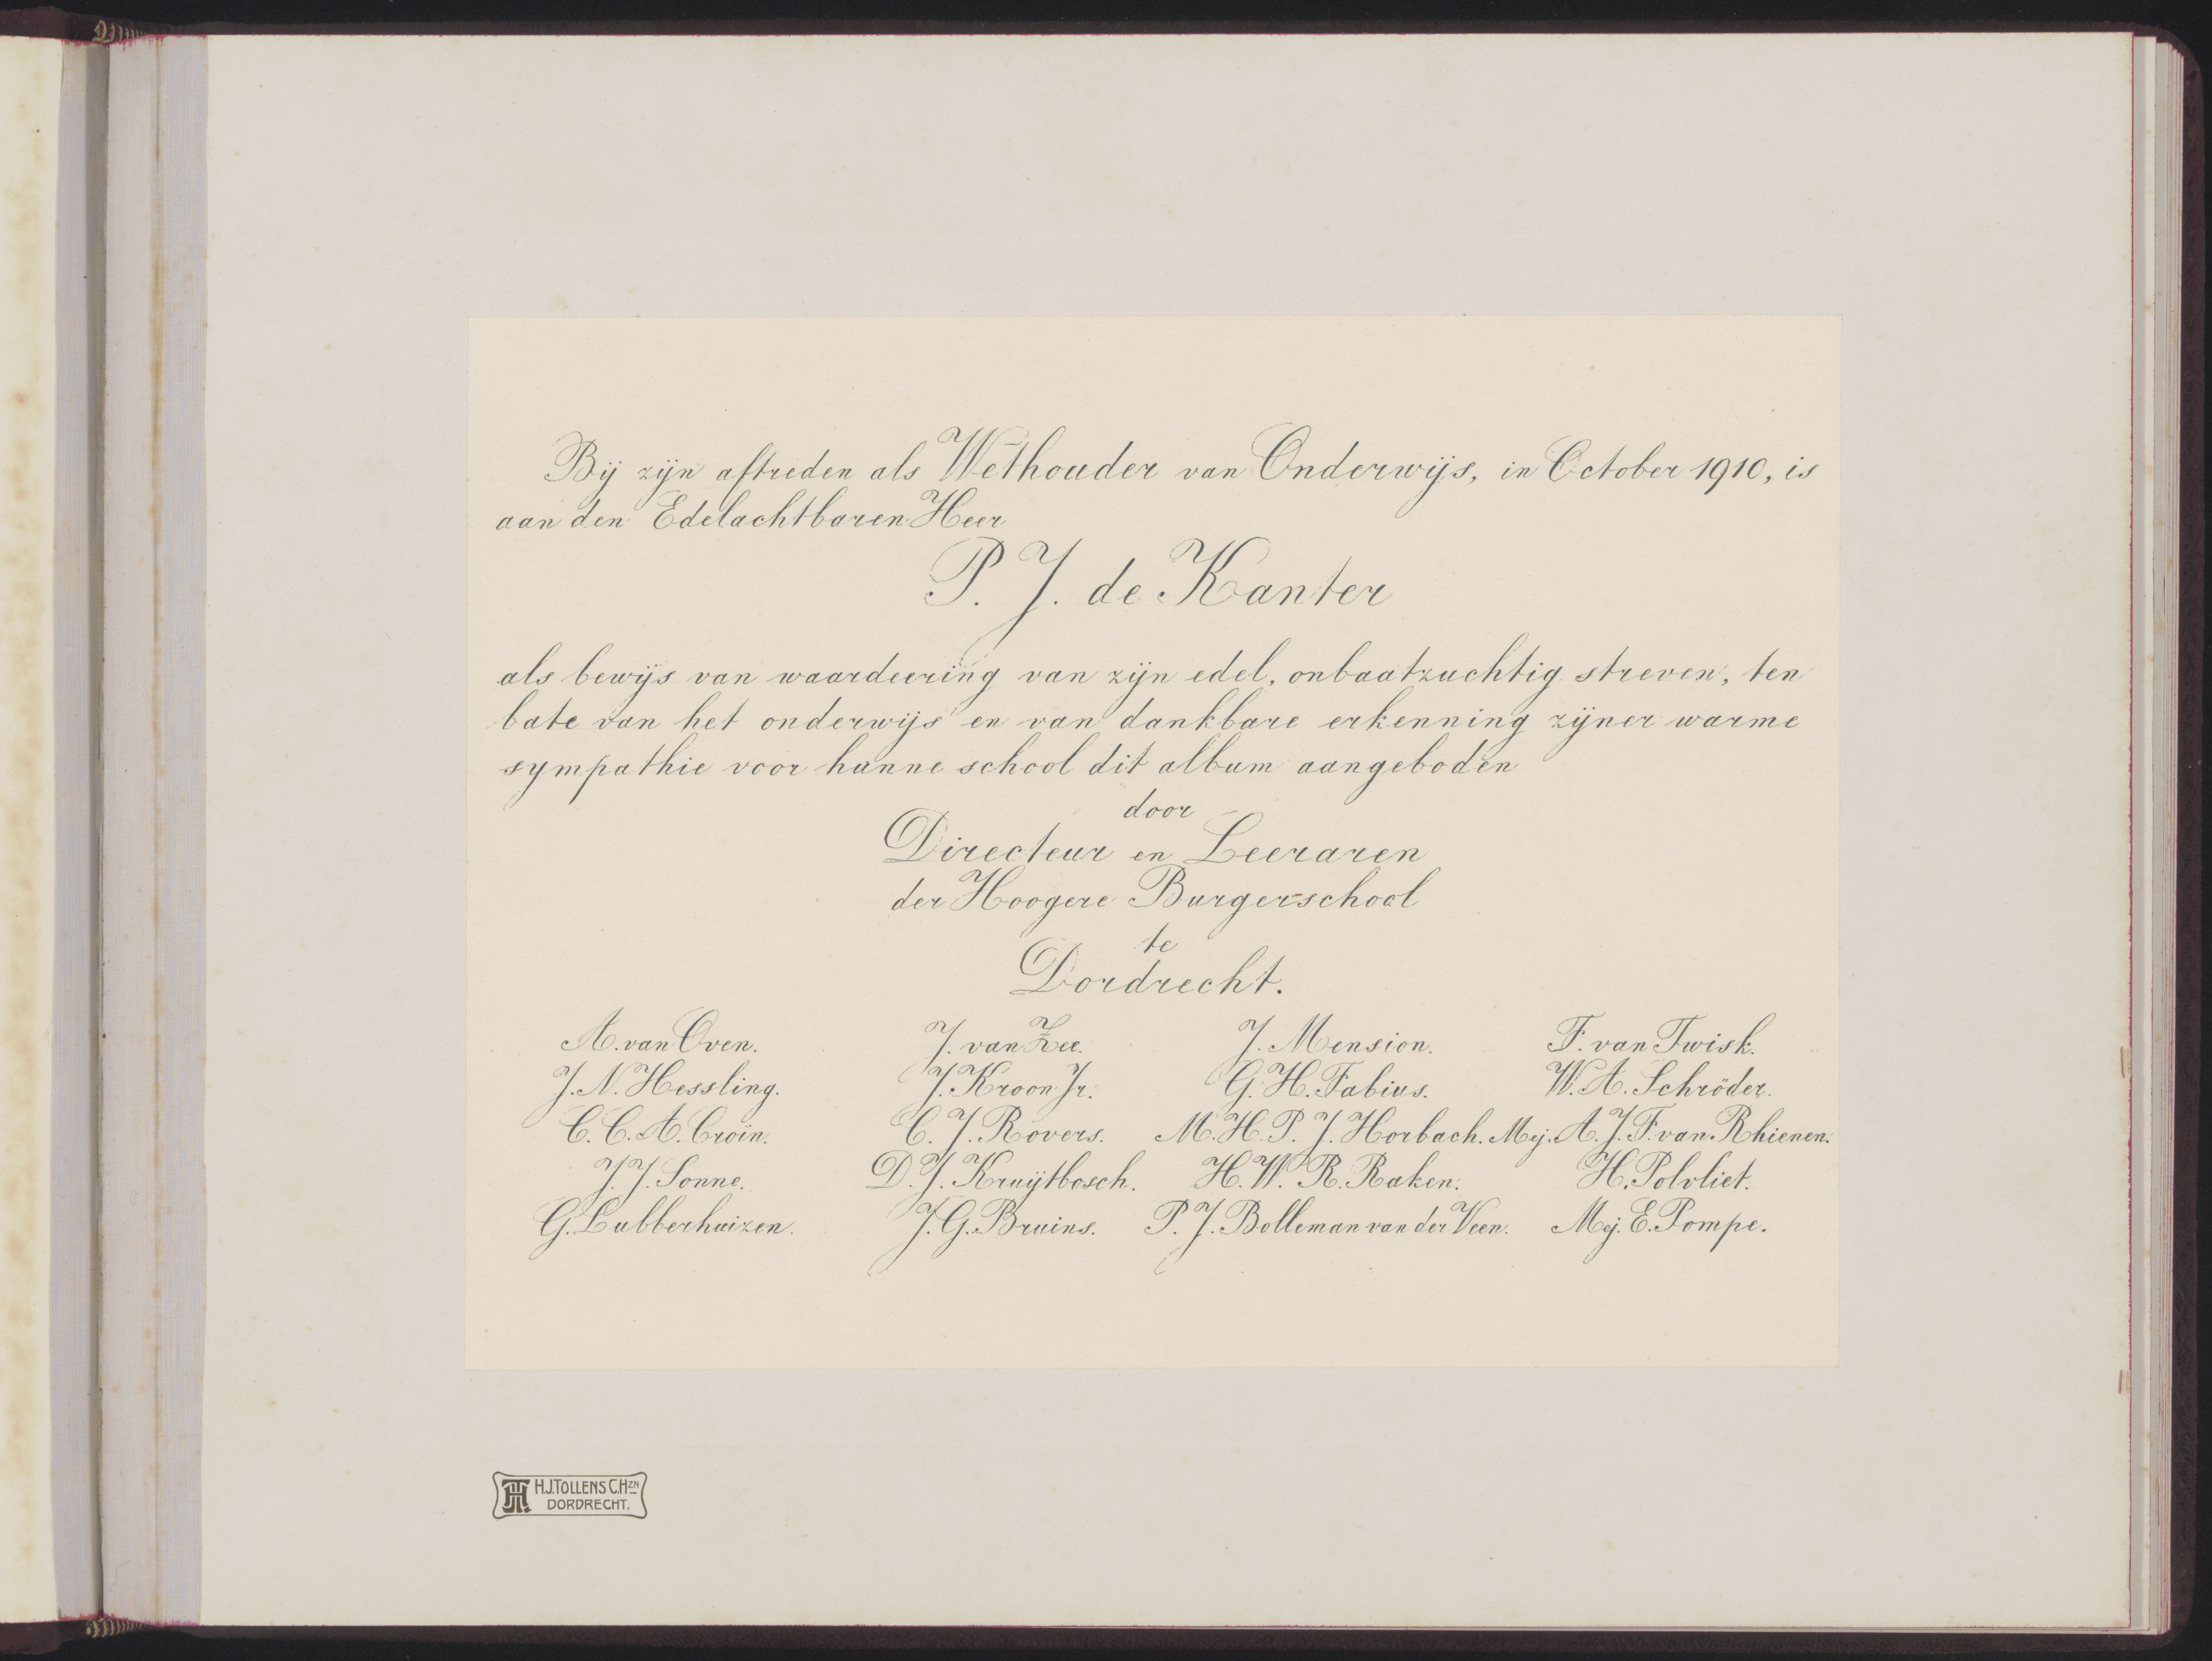 Bij zijn aftreden als Wethouder van Onderwijs, in October 1910, is
aan den Edelachtbaren Heer
P. J. de Kanter
als bewijs van waardeering van zijn edel, onbaatzuchtig streven, ten
bate van het onderwijs en van dankbare erkenning zijner warme
sympathie voor hunne school dit album aangeboden
door
Directeur en Leeraren
der Hoogere Burgerschool
te
Dordrecht.
A. van Oven. J. van Zee. J. Mension. F. van Twisk.
J. N. Hessling. J. Kroon Jr. G. H. Fabius. W. A. Schröder.
C. C. A. Croïn. C. J. Rovers. M. H. P. J. Horbach. Mej. A. J. F. van Rhienen.
J. J. Sonne. D. J. Kruijtbosch. H. W. R. Raken. H. Polvliet.
G. Lubberhuizen. J. G. Bruins. P. J. Bolleman van der Veen. Mej. E. Pompe.
H.J. TOLLENS C.HZN
DORDRECHT.